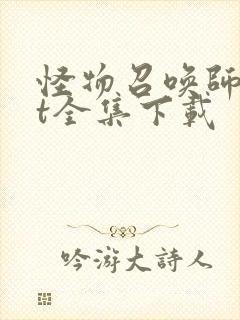 怪物召唤師
t全集下載
吟游大詩人